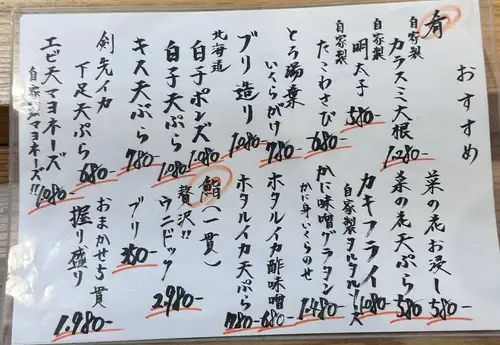 肴
おすすめ
自家製
カラスミ大根
1.280-
自家製
明太子
580-
自家製
たこわさび
680-
とろ湯葉
いくらがけ
780-
ブリ造り
1.080-
北海道
白子ポンズ
1.080-
白子天ぷら
1.080-
キス天ぷら
780-
剣先イカ
下足天ぷら
680-
エビ天マヨネーズ
自家製マヨネーズ!!
1.080-
菜の花お浸し
580-
菜の花天ぷら
580
カキフライ
自家製タルタルソース
1.080-
かに味噌グラタン
かに身いくらのせ
1.480-
ホタルイカ酢味噌
680-
ホタルイカ天ぷら
780-
鮨(一貫)
贅沢!!
ウニドック
2.980-
ブリ
350-
おまかせ5貫
握り盛り
1.980-